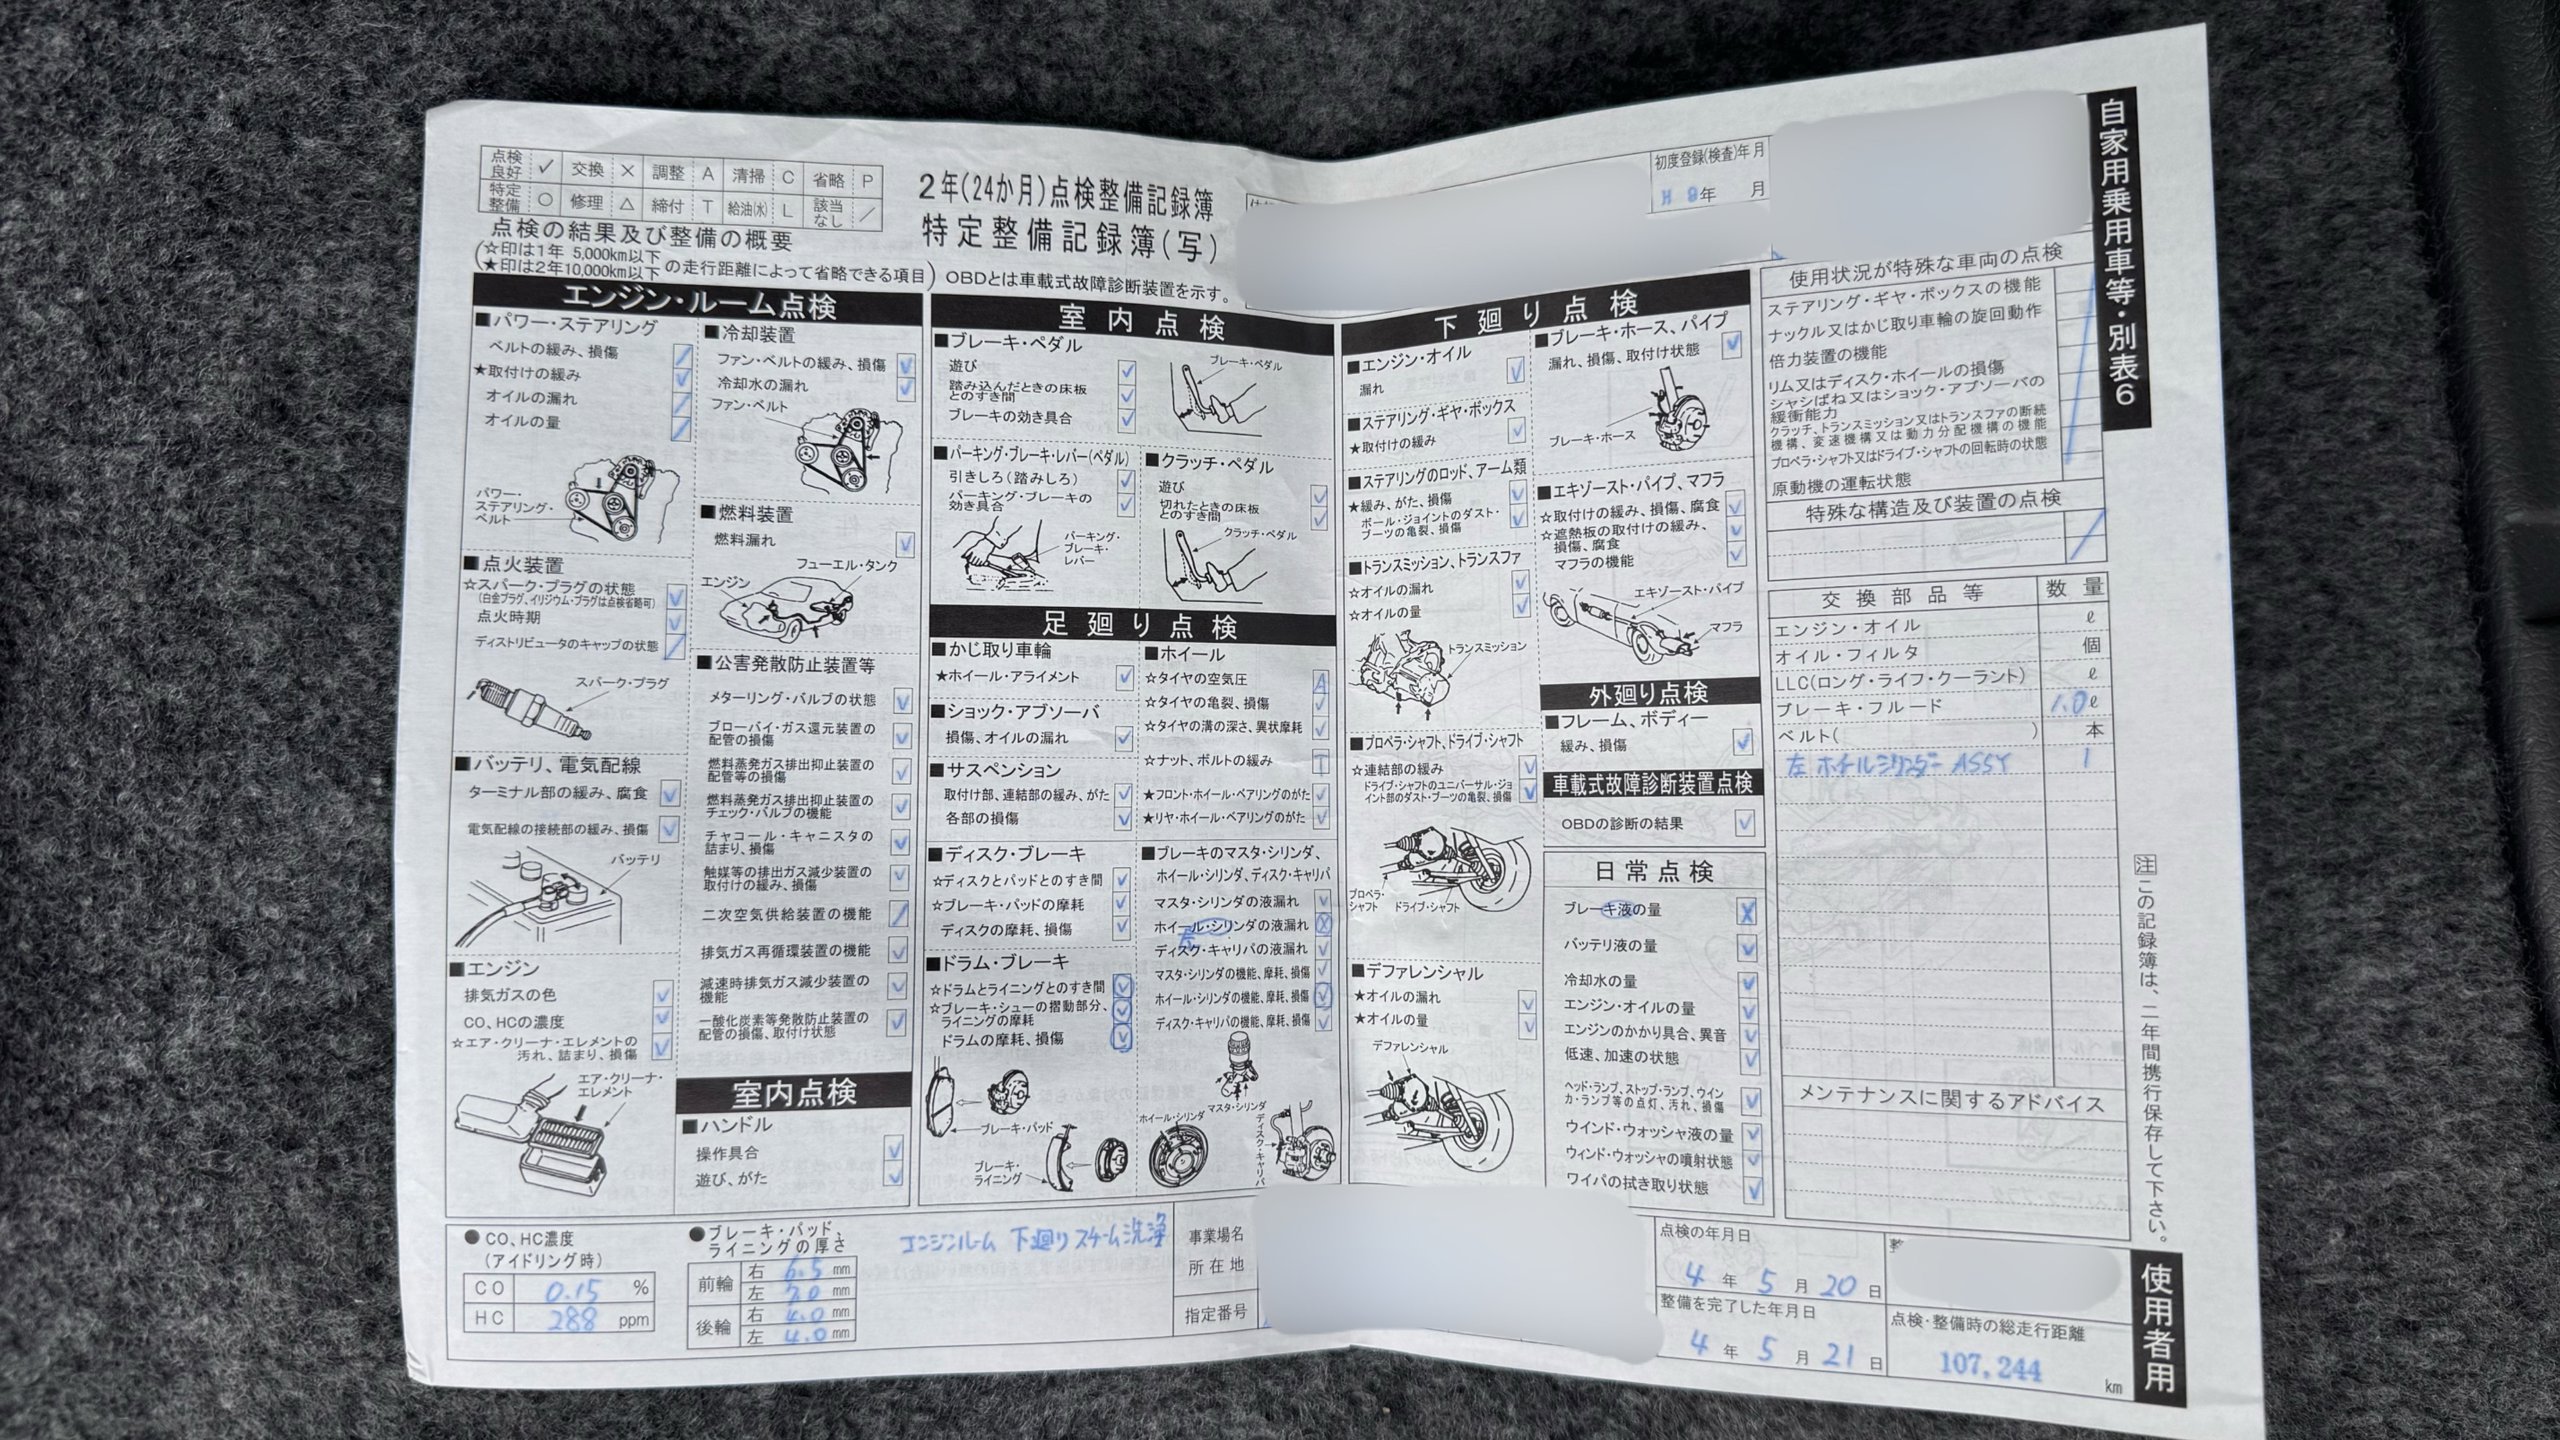 点検良好 ✓ 交換 × 調整 A 清掃 C 省略 P
特定整備 ○ 修理 △ 締付 T 給油(水) L 該当なし ／
点検の結果及び整備の概要
(☆印は1年 5,000km以下
★印は2年10,000km以下 の走行距離によって省略できる項目)
OBDとは車載式故障診断装置を示す。
2年(24か月)点検整備記録簿
特定整備記録簿(写)
初度登録(検査)年月
H 9年 月
自家用乗用車等・別表6
エンジン・ルーム点検
■パワー・ステアリング
ベルトの緩み、損傷 ／
★取付けの緩み ✓
オイルの漏れ ／
オイルの量 ／
パワー・
ステアリング・
ベルト
■点火装置
☆スパーク・プラグの状態 ✓
(白金プラグ、イリジウム・プラグは点検省略可)
点火時期 ✓
ディストリビュータのキャップの状態 ／
スパーク・プラグ
■バッテリ、電気配線
ターミナル部の緩み、腐食 ✓
電気配線の接続部の緩み、損傷 ✓
バッテリ
■エンジン
排気ガスの色 ✓
CO、HCの濃度 ✓
☆エア・クリーナ・エレメントの
汚れ、詰まり、損傷 ✓
エア・クリーナ・
エレメント
■冷却装置
ファン・ベルトの緩み、損傷 ✓
冷却水の漏れ ✓
ファン・ベルト
■燃料装置
燃料漏れ ✓
フューエル・タンク
エンジン
■公害発散防止装置等
メターリング・バルブの状態 ✓
ブローバイ・ガス還元装置の
配管の損傷 ✓
燃料蒸発ガス排出抑止装置の
配管等の損傷 ✓
燃料蒸発ガス排出抑止装置の
チェック・バルブの機能 ✓
チャコール・キャニスタの
詰まり、損傷 ✓
触媒等の排出ガス減少装置の
取付けの緩み、損傷 ✓
二次空気供給装置の機能 ／
排気ガス再循環装置の機能 ✓
減速時排気ガス減少装置の
機能 ✓
一酸化炭素等発散防止装置の
配管の損傷、取付け状態 ✓
室内点検
■ハンドル
操作具合 ✓
遊び、がた ✓
室内点検
■ブレーキ・ペダル
遊び ✓
踏み込んだときの床板
とのすき間 ✓
ブレーキの効き具合 ✓
ブレーキ・ペダル
■パーキング・ブレーキ・レバー(ペダル)
引きしろ(踏みしろ) ✓
パーキング・ブレーキの
効き具合 ✓
パーキング・
ブレーキ・
レバー
■クラッチ・ペダル
遊び ✓
切れたときの床板
とのすき間 ✓
クラッチ・ペダル
足廻り点検
■かじ取り車輪
★ホイール・アライメント ✓
■ショック・アブソーバ
損傷、オイルの漏れ ✓
■サスペンション
取付け部、連結部の緩み、がた ✓
各部の損傷 ✓
■ディスク・ブレーキ
☆ディスクとパッドとのすき間 ✓
☆ブレーキ・パッドの摩耗 ✓
ディスクの摩耗、損傷 ✓
■ドラム・ブレーキ
☆ドラムとライニングとのすき間 ✓
☆ブレーキ・シューの摺動部分、
ライニングの摩耗 ✓
ドラムの摩耗、損傷 ✓
ブレーキ・パッド
ブレーキ・
ライニング
■ホイール
☆タイヤの空気圧 A
☆タイヤの亀裂、損傷 ✓
☆タイヤの溝の深さ、異状摩耗 ✓
☆ナット、ボルトの緩み T
★フロント・ホイール・ベアリングのがた ✓
★リヤ・ホイール・ベアリングのがた ✓
■ブレーキのマスタ・シリンダ、
ホイール・シリンダ、ディスク・キャリパ
マスタ・シリンダの液漏れ ✓
ホイール・シリンダの液漏れ ×
左
ディスク・キャリパの液漏れ ✓
マスタ・シリンダの機能、摩耗、損傷 ✓
ホイール・シリンダの機能、摩耗、損傷 ✓
ディスク・キャリパの機能、摩耗、損傷 ✓
マスタ・シリンダ
ホイール・シリンダ
ディスク・キャリパ
下廻り点検
■エンジン・オイル
漏れ ✓
■ステアリング・ギヤ・ボックス
★取付けの緩み ✓
■ステアリングのロッド、アーム類
★緩み、がた、損傷 ✓
ボール・ジョイントのダスト・
ブーツの亀裂、損傷 ✓
■トランスミッション、トランスファ
☆オイルの漏れ ✓
☆オイルの量 ✓
トランスミッション
■プロペラ・シャフト、ドライブ・シャフト
☆連結部の緩み ✓
ドライブ・シャフトのユニバーサル・ジョ
イント部のダスト・ブーツの亀裂、損傷 ✓
プロペラ・
シャフト
ドライブ・シャフト
■デファレンシャル
★オイルの漏れ ✓
★オイルの量 ✓
デファレンシャル
■ブレーキ・ホース、パイプ
漏れ、損傷、取付け状態 ✓
ブレーキ・ホース
■エキゾースト・パイプ、マフラ
☆取付けの緩み、損傷、腐食 ✓
☆遮熱板の取付けの緩み、
損傷、腐食 ✓
マフラの機能 ✓
エキゾースト・パイプ
マフラ
外廻り点検
■フレーム、ボディー
緩み、損傷 ✓
車載式故障診断装置点検
OBDの診断の結果 ✓
日常点検
ブレーキ液の量 ×
バッテリ液の量 ✓
冷却水の量 ✓
エンジン・オイルの量 ✓
エンジンのかかり具合、異音 ✓
低速、加速の状態 ✓
ヘッド・ランプ、ストップ・ランプ、ウイン
カ・ランプ等の点灯、汚れ、損傷 ✓
ウインド・ウォッシャ液の量 ✓
ウィンド・ウォッシャの噴射状態 ✓
ワイパの拭き取り状態 ✓
使用状況が特殊な車両の点検
ステアリング・ギヤ・ボックスの機能
ナックル又はかじ取り車輪の旋回動作
倍力装置の機能
リム又はディスク・ホイールの損傷
シャシばね又はショック・アブソーバの
緩衝能力
クラッチ、トランスミッション又はトランスファの断続
機構、変速機構又は動力分配機構の機能
プロペラ・シャフト又はドライブ・シャフトの回転時の状態
原動機の運転状態
特殊な構造及び装置の点検
／
交換部品等 数量
エンジン・オイル ℓ
オイル・フィルタ 個
LLC(ロング・ライフ・クーラント) ℓ
ブレーキ・フルード 1.0ℓ
ベルト( ) 本
左 ホイールシリンダー ASSY 1
メンテナンスに関するアドバイス
注 この記録簿は、二年間携行保存して下さい。
使用者用
●CO、HC濃度
(アイドリング時)
CO 0.15 %
HC 288 ppm
●ブレーキ・パッド、
ライニングの厚さ
前輪 右 6.5 mm
左 7.0 mm
後輪 右 4.0 mm
左 4.0 mm
エンジンルーム 下廻り スチーム洗浄
事業場名
所在地
指定番号
点検の年月日
4 年 5 月 20 日
整備を完了した年月日
4 年 5 月 21 日
整
点検・整備時の総走行距離
107,244
km